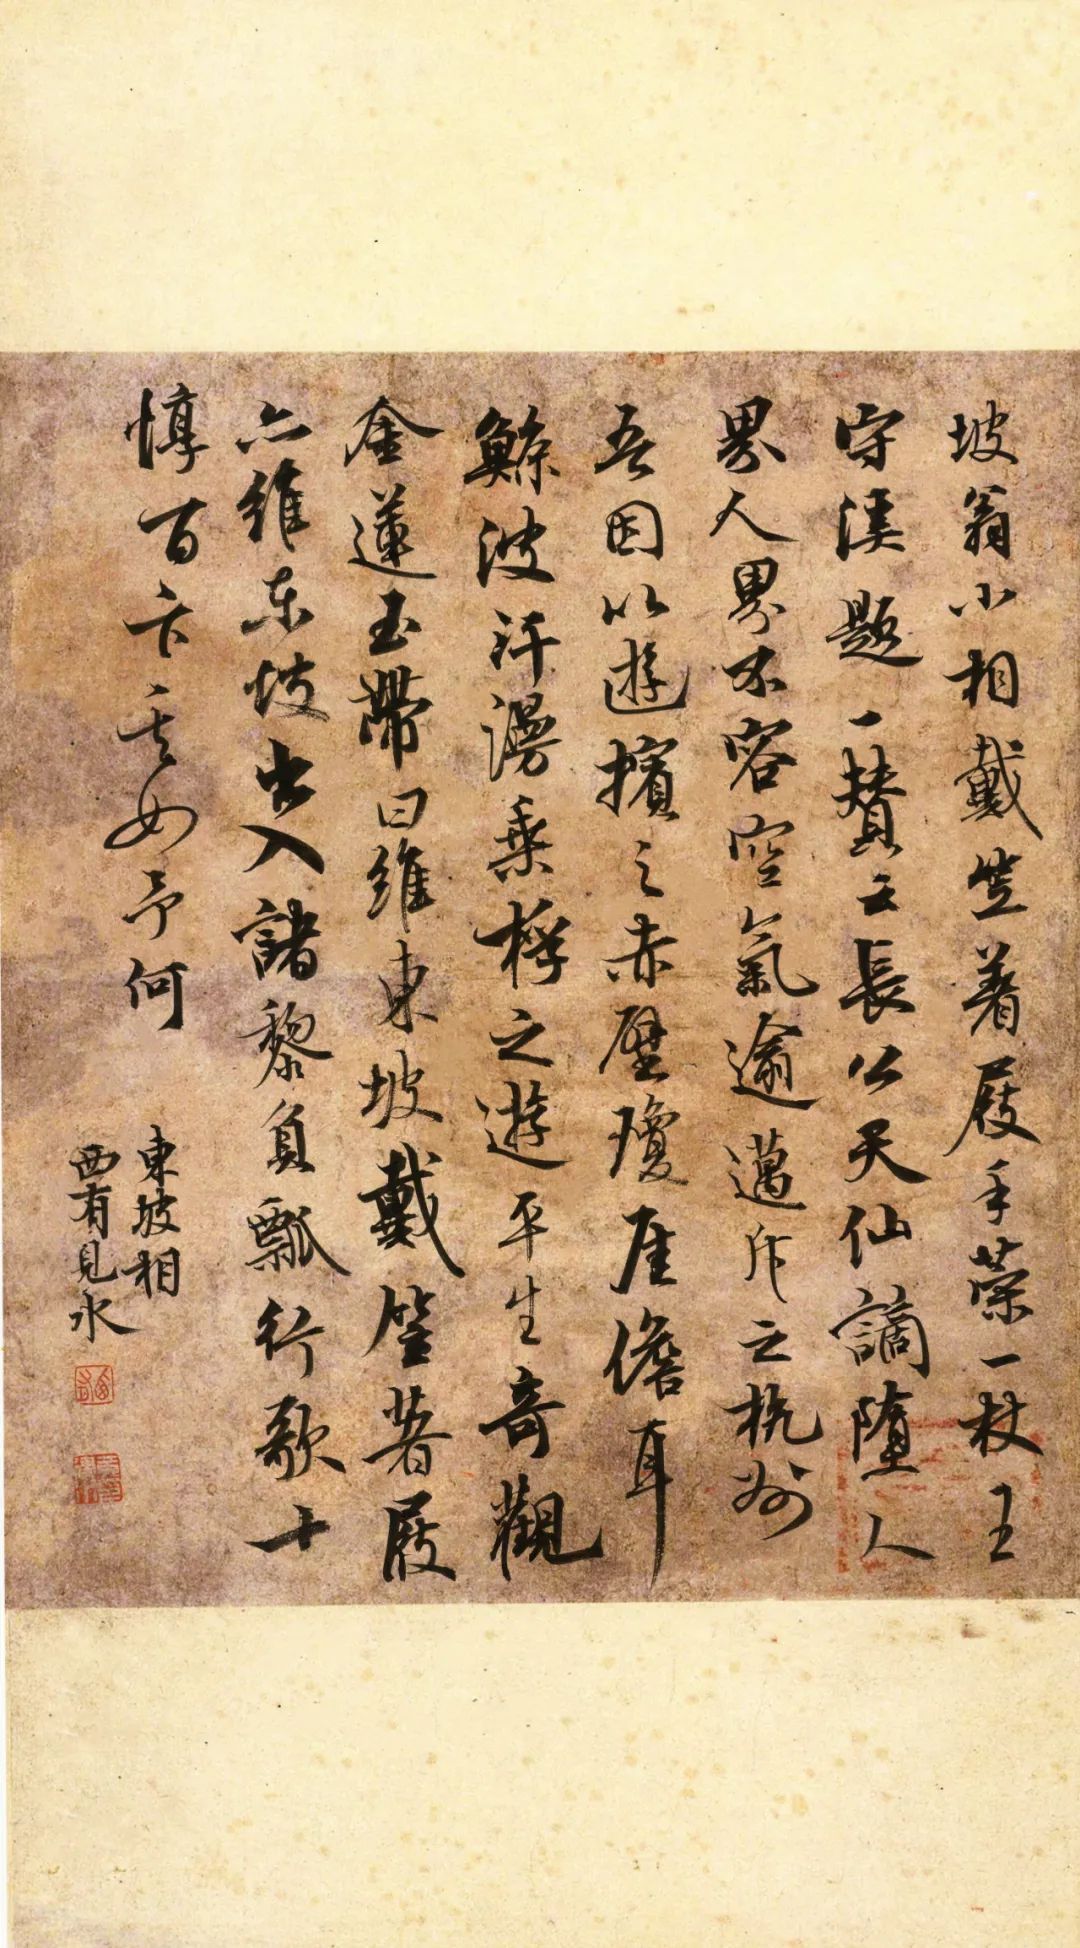 坡翁小相戴笠着屐手荣一杖王
守溪题一赞云长公天仙謫墮人
界人界不容空氣逾邁斥之杭州
吾因以遊擯之赤壁瓊崖儋耳
鯨波汗漫乗桴之遊平生奇觀
金蓮玉帶曰維東坡戴笠著屐
亦維东坡出入諸黎負瓢行歌十
惇百卞其如予何
東坡相
西有見水